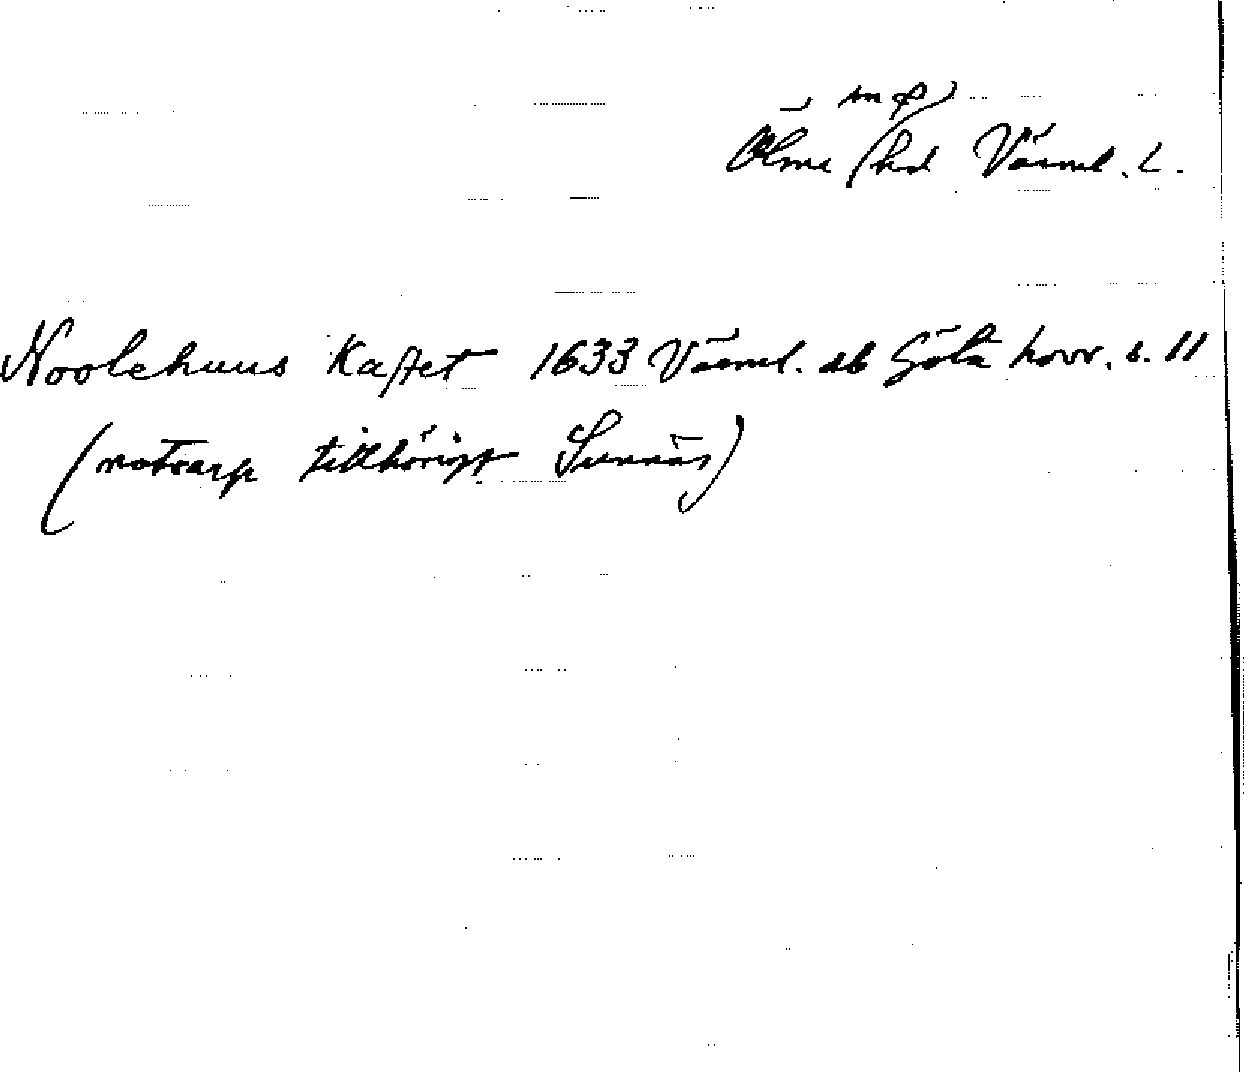 sn &)
Ölme (hd Värml. L.
Noolehuus Kastet 1633 Värml. db Göta hovr. s. 11
(notvarp tillhörigt Sunnäs)